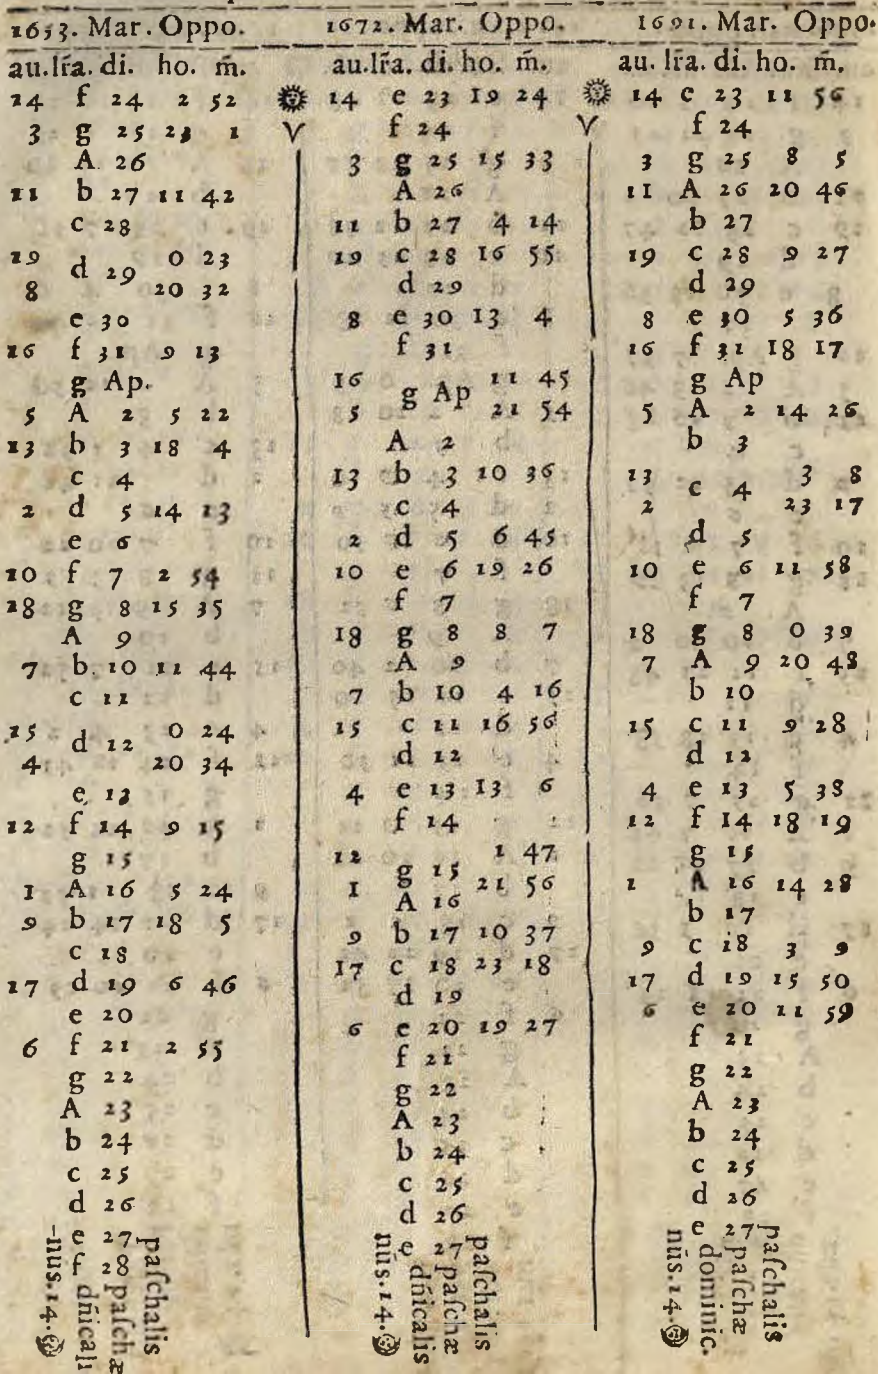 1653. Mar. Oppo.
au. lr̃a. di. ho. m̃.
14 f 24 2 52
3 g 25 23 1
A 26
11 b 27 11 42
c 28
19 d 29 0 23
8 20 32
e 30
16 f 31 9 13
g Ap.
5 A 2 5 22
13 b 3 18 4
c 4
2 d 5 14 13
e 6
10 f 7 2 54
18 g 8 15 35
A 9
7 b 10 11 44
c 11
15 d 12 0 24
4 20 34
e 13
12 f 14 9 15
g 15
1 A 16 5 24
9 b 17 18 5
c 18
17 d 19 6 46
e 20
6 f 21 2 55
g 22
A 23
b 24
c 25
d 26
e 27 paſchalis
f 28 paſchæ
dñicali
-nũs. 14.
1672. Mar. Oppo.
au. lr̃a. di. ho. m̃.
14 e 23 19 24
♈ f 24
3 g 25 15 33
A 26
11 b 27 4 14
19 c 28 16 55
d 29
8 e 30 13 4
f 31
16 g Ap 11 45
5 21 54
A 2
13 b 3 10 36
c 4
2 d 5 6 45
10 e 6 19 26
f 7
18 g 8 8 7
A 9
7 b 10 4 16
15 c 11 16 56
d 12
4 e 13 13 6
f 14
12 g 15 1 47
1 A 16 21 56
9 b 17 10 37
17 c 18 23 18
d 19
6 e 20 19 27
f 21
g 22
A 23
b 24
c 25
d 26
e 27 paſchalis
paſchæ
dñicalis
nũs. 14.
1691. Mar. Oppo.
au. lr̃a. di. ho. m̃.
14 c 23 11 56
♈ f 24
3 g 25 8 5
11 A 26 20 46
b 27
19 c 28 9 27
d 29
8 e 30 5 36
16 f 31 18 17
g Ap
5 A 2 14 26
b 3
13 c 4 3 8
2 23 17
d 5
10 e 6 11 58
f 7
18 g 8 0 39
7 A 9 20 48
b 10
15 c 11 9 28
d 12
4 e 13 5 38
12 f 14 18 19
g 15
1 A 16 14 28
b 17
9 c i8 3 9
17 d 19 15 50
6 e 20 11 59
f 21
g 22
A 23
b 24
c 25
d 26
e 27 paſchalis
paſchæ
dominic.
nũs. 14.